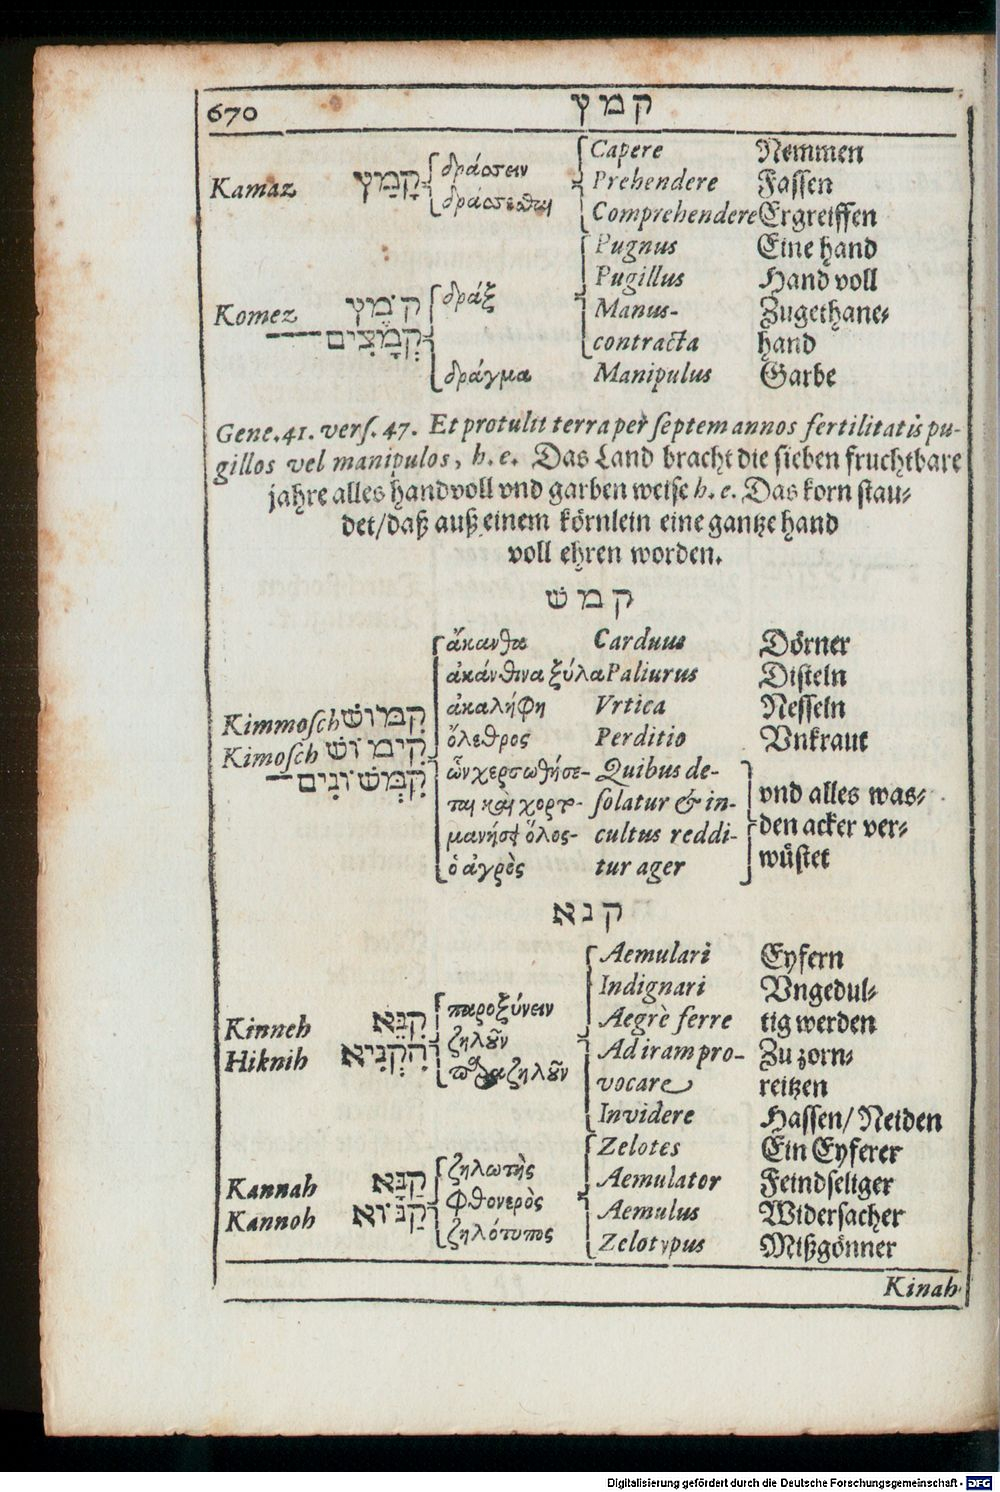 670 קמץ
Capere Nemmen
Kamaz קָמַץ δράσσειν Prehendere Fassen
δράσσεσθαι Comprehendere Ergreiffen
Pugnus Eine hand
Pugillus Hand voll
Komez קֹמֶץ δράξ Manus- Zugethane-
קְמָצִים contracta hand
δράγμα Manipulus Garbe
Gene. 41. vers. 47. Et protulit terra per septem annos fertilitatis pu-
gillos vel manipulos, h. e. Das Land bracht die sieben fruchtbare
jahre alles handvoll vnd garben weise h. e. Das korn stau-
det/daß auß einem körnlein eine gantze hand
voll ehren worden.
קמשׁ
ἄκανθα Carduus Dörner
ἀκάνθινα ξύλα Paliurus Disteln
Kimmosch קִמּוֹשׁ ἀκαλήφη Vrtica Nesseln
Kimosch קִימוֹשׁ ὄλεθρος Perditio Vnkraut
קִמְּשׁוֹנִים ὧν χερσωθήσε- Quibus de-
ται καὶ χορτ- solatur & in- vnd alles was-
ὅλος- cultus reddi- den acker ver-
ὁ ἀγρὸς tur ager wüstet
קנא
Aemulari Eyfern
Indignari Vngedul-
Kinneh קִנֵּא παροξύνειν Aegrè ferre tig werden
Hiknih הִקְנִיא ζηλοῦν Ad iram pro- Zu zorn-
παραζηλοῦν vocare reitzen
Invidere Hassen/ Neiden
Zelotes Ein Eyferer
Kannah קַנָּא ζηλωτὴς Aemulator Feindseliger
Kannoh קַנּוֹא φθονερὸς Aemulus Widersacher
ζηλότυπος Zelotypus Mißgönner
Kinah
Digitalisierung gefördert durch die Deutsche Forschungsgemeinschaft - DFG